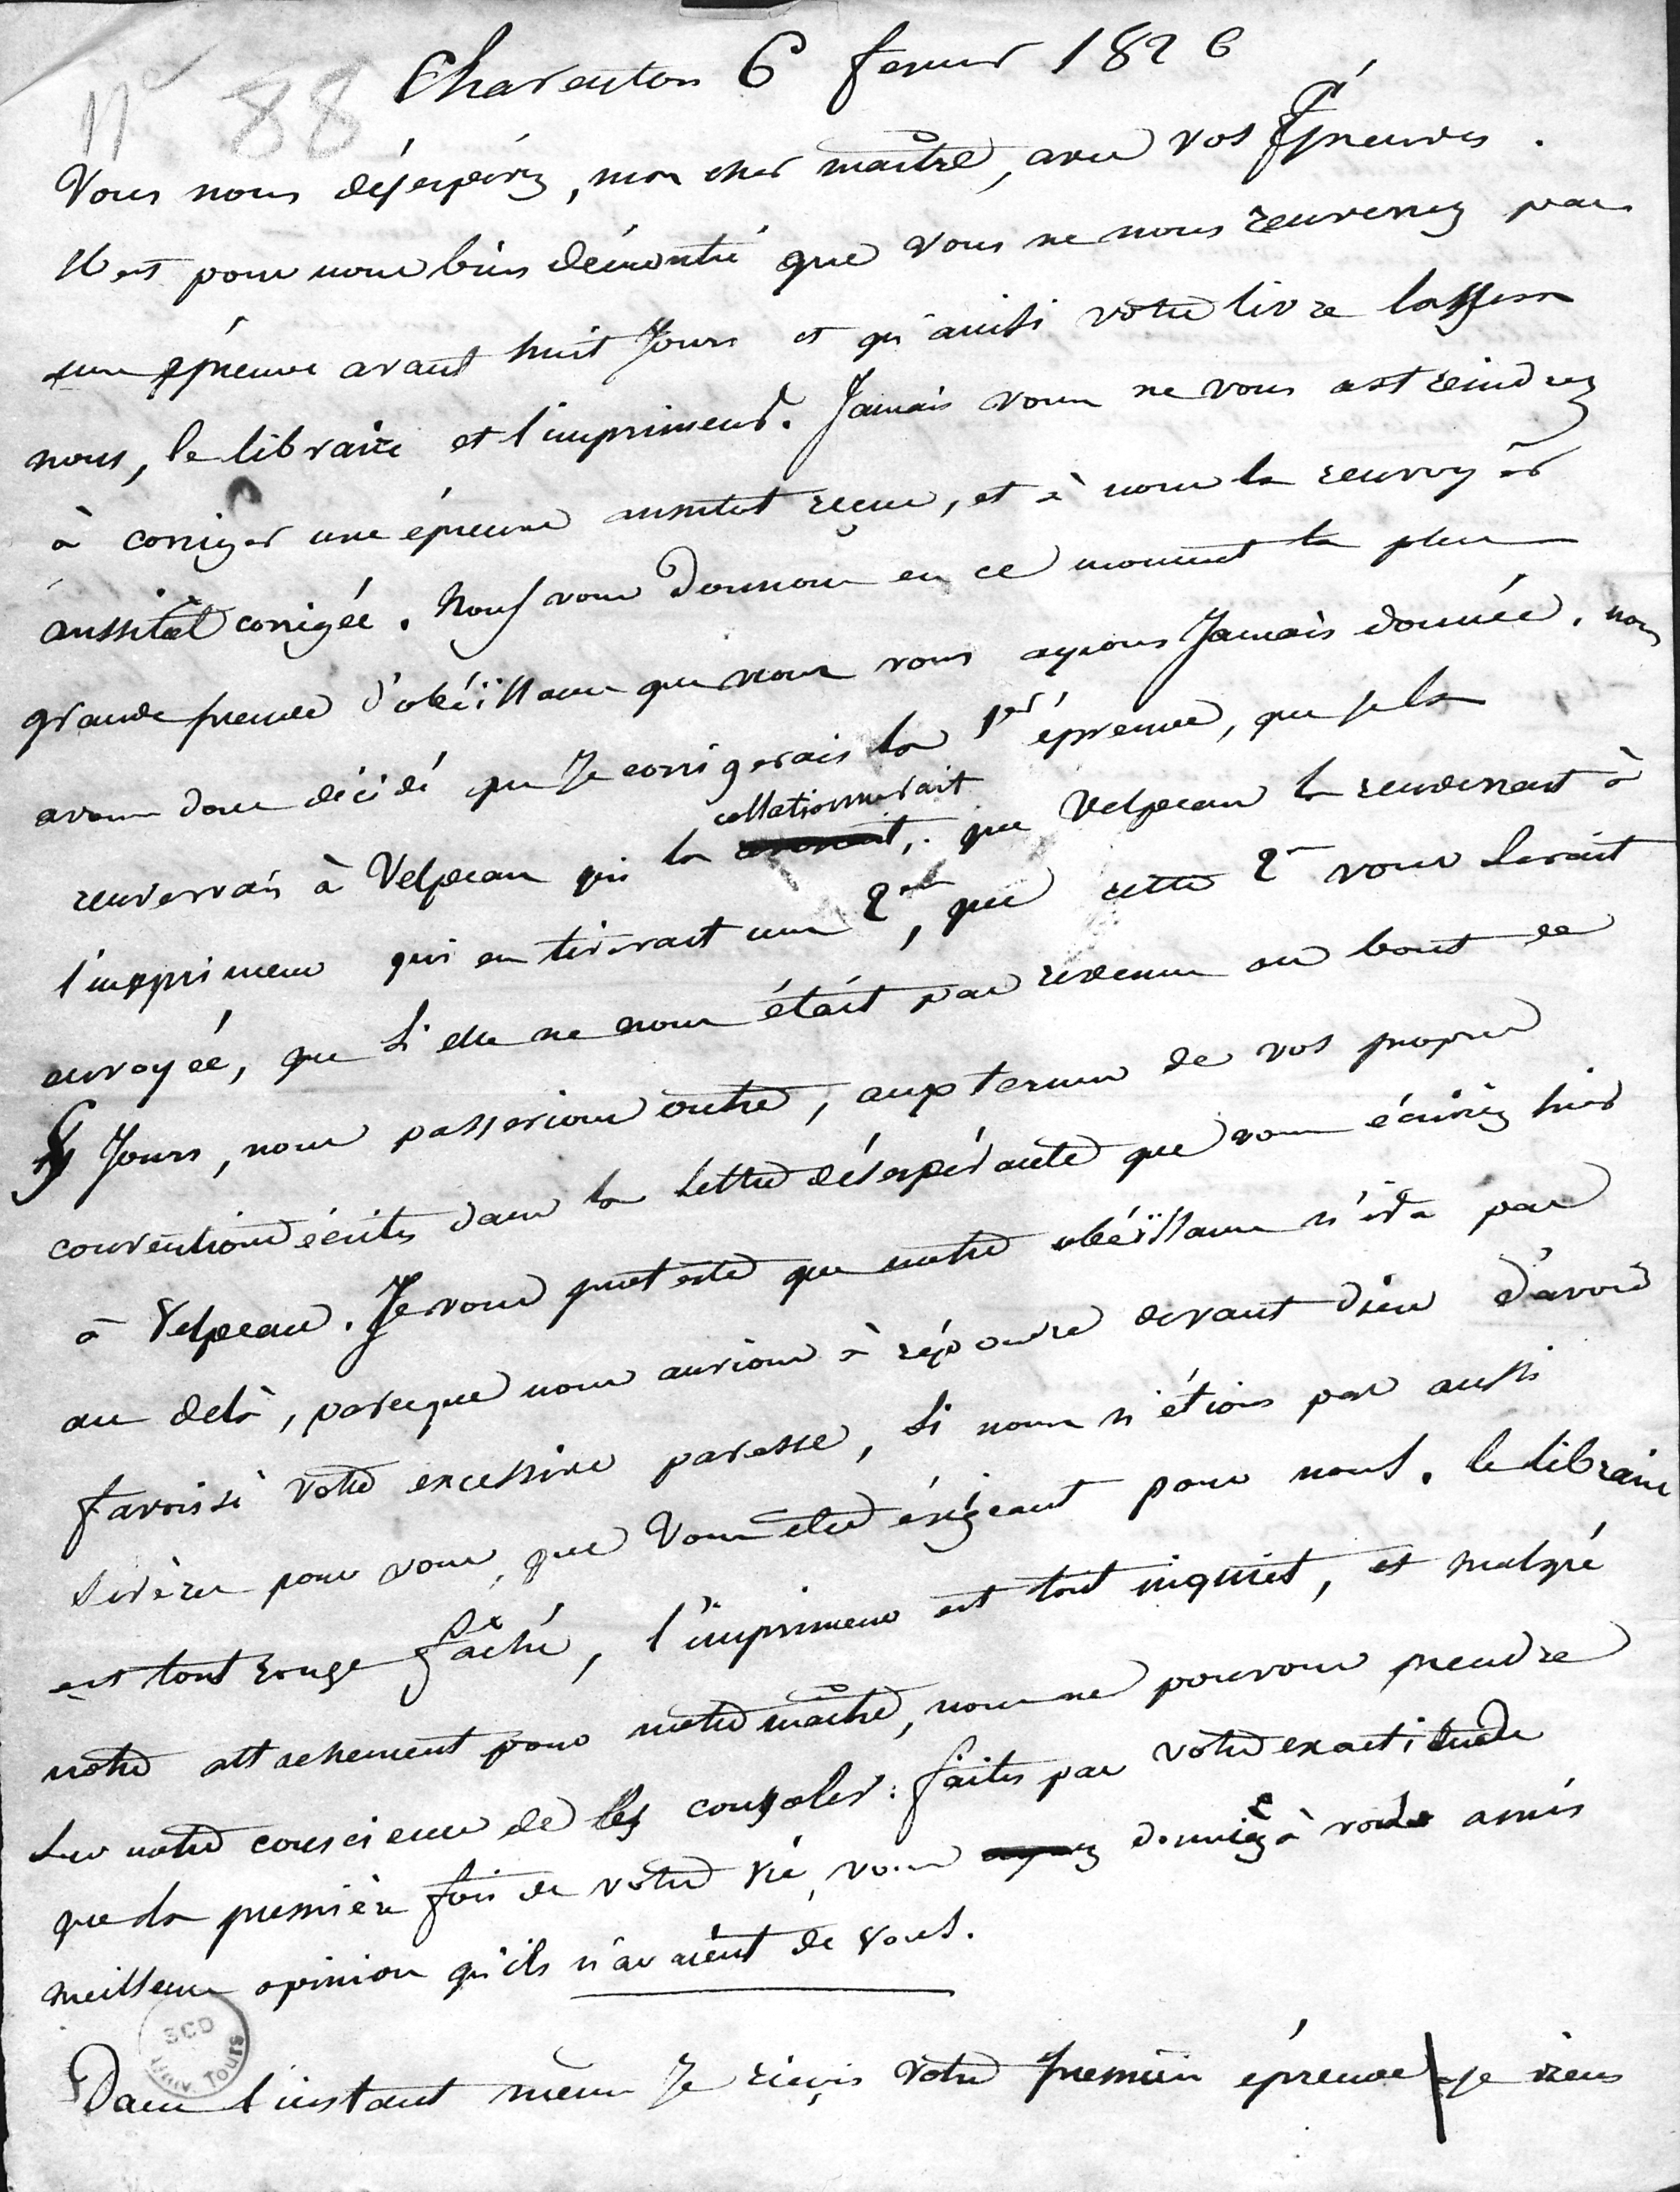 n° 88
Charenton 6 fevrier 1826
Vous nous désespérez, mon cher maître, avec vos Épreuves.
Il est pour nous bien démontré que vous ne nous renverrez pas
une épreuve avant huit Jours et qu'ainsi votre livre lassera
nous, le libraire et l'imprimeur. Jamais vous ne vous astreindrez
à corriger une épreuve aussitot reçue, et à nous la renvoyer
aussitôt corrigée. Nous vous donnons en ce moment la plus
grande preuve d'obéïssance que nous vous ayions Jamais donnée. nous
avons donc décidé que Je corrigerais la 1er épreuve, que je la
renverrais à Velpeau qui la collationnerait, que Velpeau la renverrait à
l'imprimeur qui en tirerait une 2me, que cette 2me vous serait
envoyée, que si elle ne nous était pas revenue au bout de
Jours, nous passerions outre, aux termes de vos propres
conventions écrites dans la lettre désespérante que vous écriviez hier
à Velpeau. Je vous proteste que notre obéïssance n'ira pas
au delà, parceque nous aurions à répondre devant dieu d'avoir
favorisé votre excessive paresse, si nous n'étions pas aussi
sévères pour vous, que vous êtes éxigeant pour nous. le libraire
est tout rouge fâché, l'imprimeur est tout inquiet, et malgré
notre attachement pour notre maître, nous ne pouvons prendre
sur notre conscience de les consoler: faites par votre exactitude
que la première fois de votre vie, vous donniez à vos amis
meilleure opinion qu'ils n'avaient de vous.
SCD
Univ. Tours
Dans l'instant même Je reçois votre premiere épreuve je viens